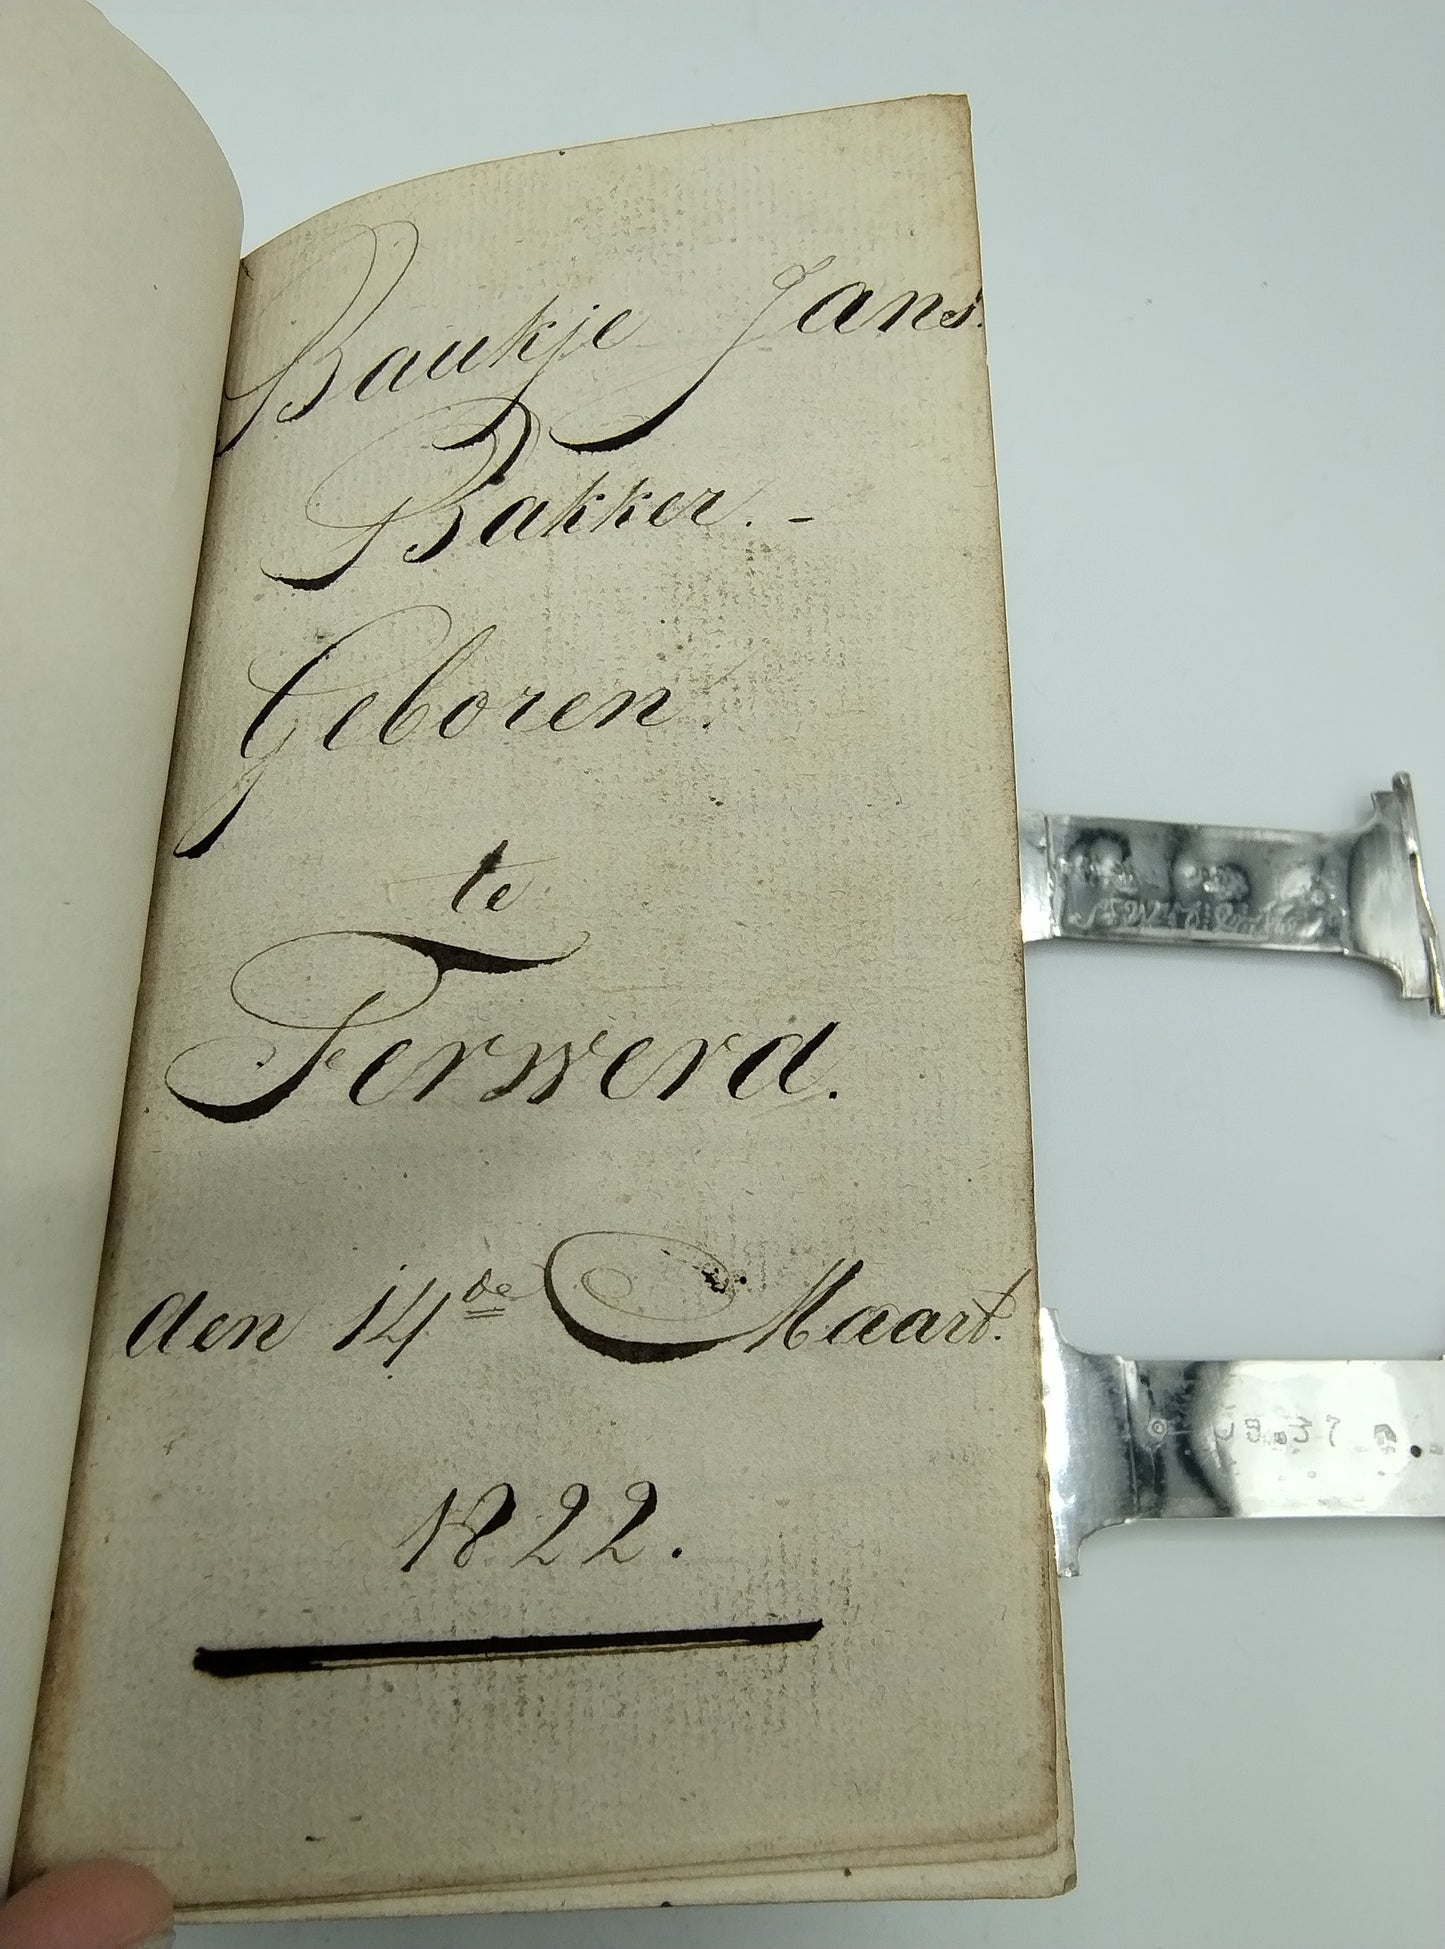 Baukje Jans.
Bakker. -
Geboren.
te
Ferwerd.
den 14de Maart.
1822.